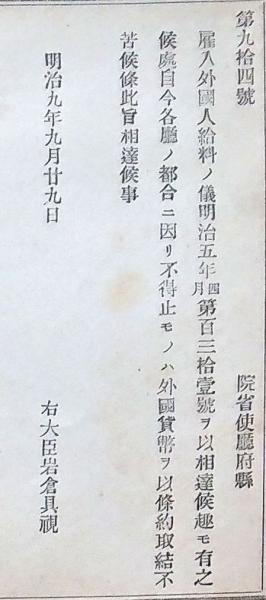 第九拾四號
院省使廳府縣
雇入外國人給料ノ儀明治五年四月第百三拾壹號ヲ以相達候趣モ有之
候處自今各廳ノ都合ニ因リ不得止モノハ外國貨幣ヲ以條約取結不
苦候條此旨相達候事
明治九年九月廿九日
右大臣岩倉具視